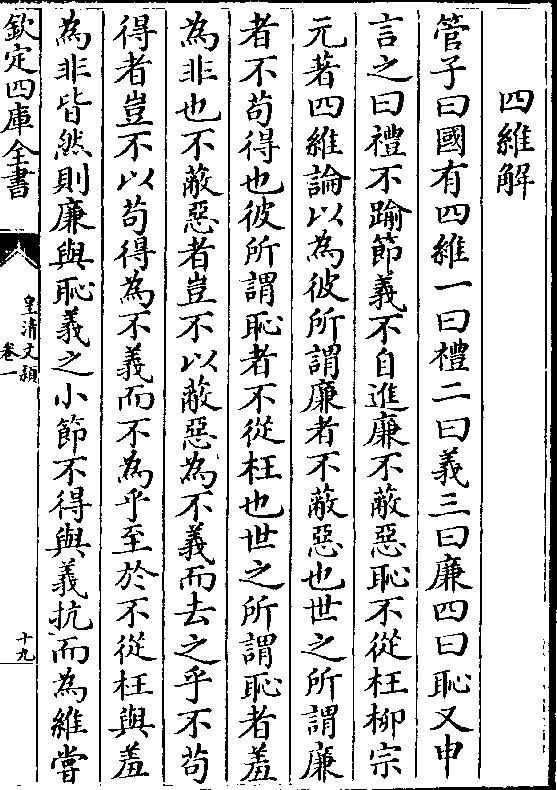 四維解
管子曰國有四維一曰禮二曰義三曰廉四曰恥又申
言之曰禮不踰節義不自進廉不蔽惡恥不從枉柳宗
元著四維論以為彼所謂廉者不蔽惡也世之所謂廉
者不苟得也彼所謂恥者不從枉也世之所謂恥者羞
為非也不蔽惡者豈不以蔽惡為不義而去之乎不苟
得者豈不以苟得為不義而不為乎至於不從枉與羞
為非皆然則廉與恥義之小節不得與義抗而為維嘗
欽定四庫全書
皇清文頴
卷一
十九